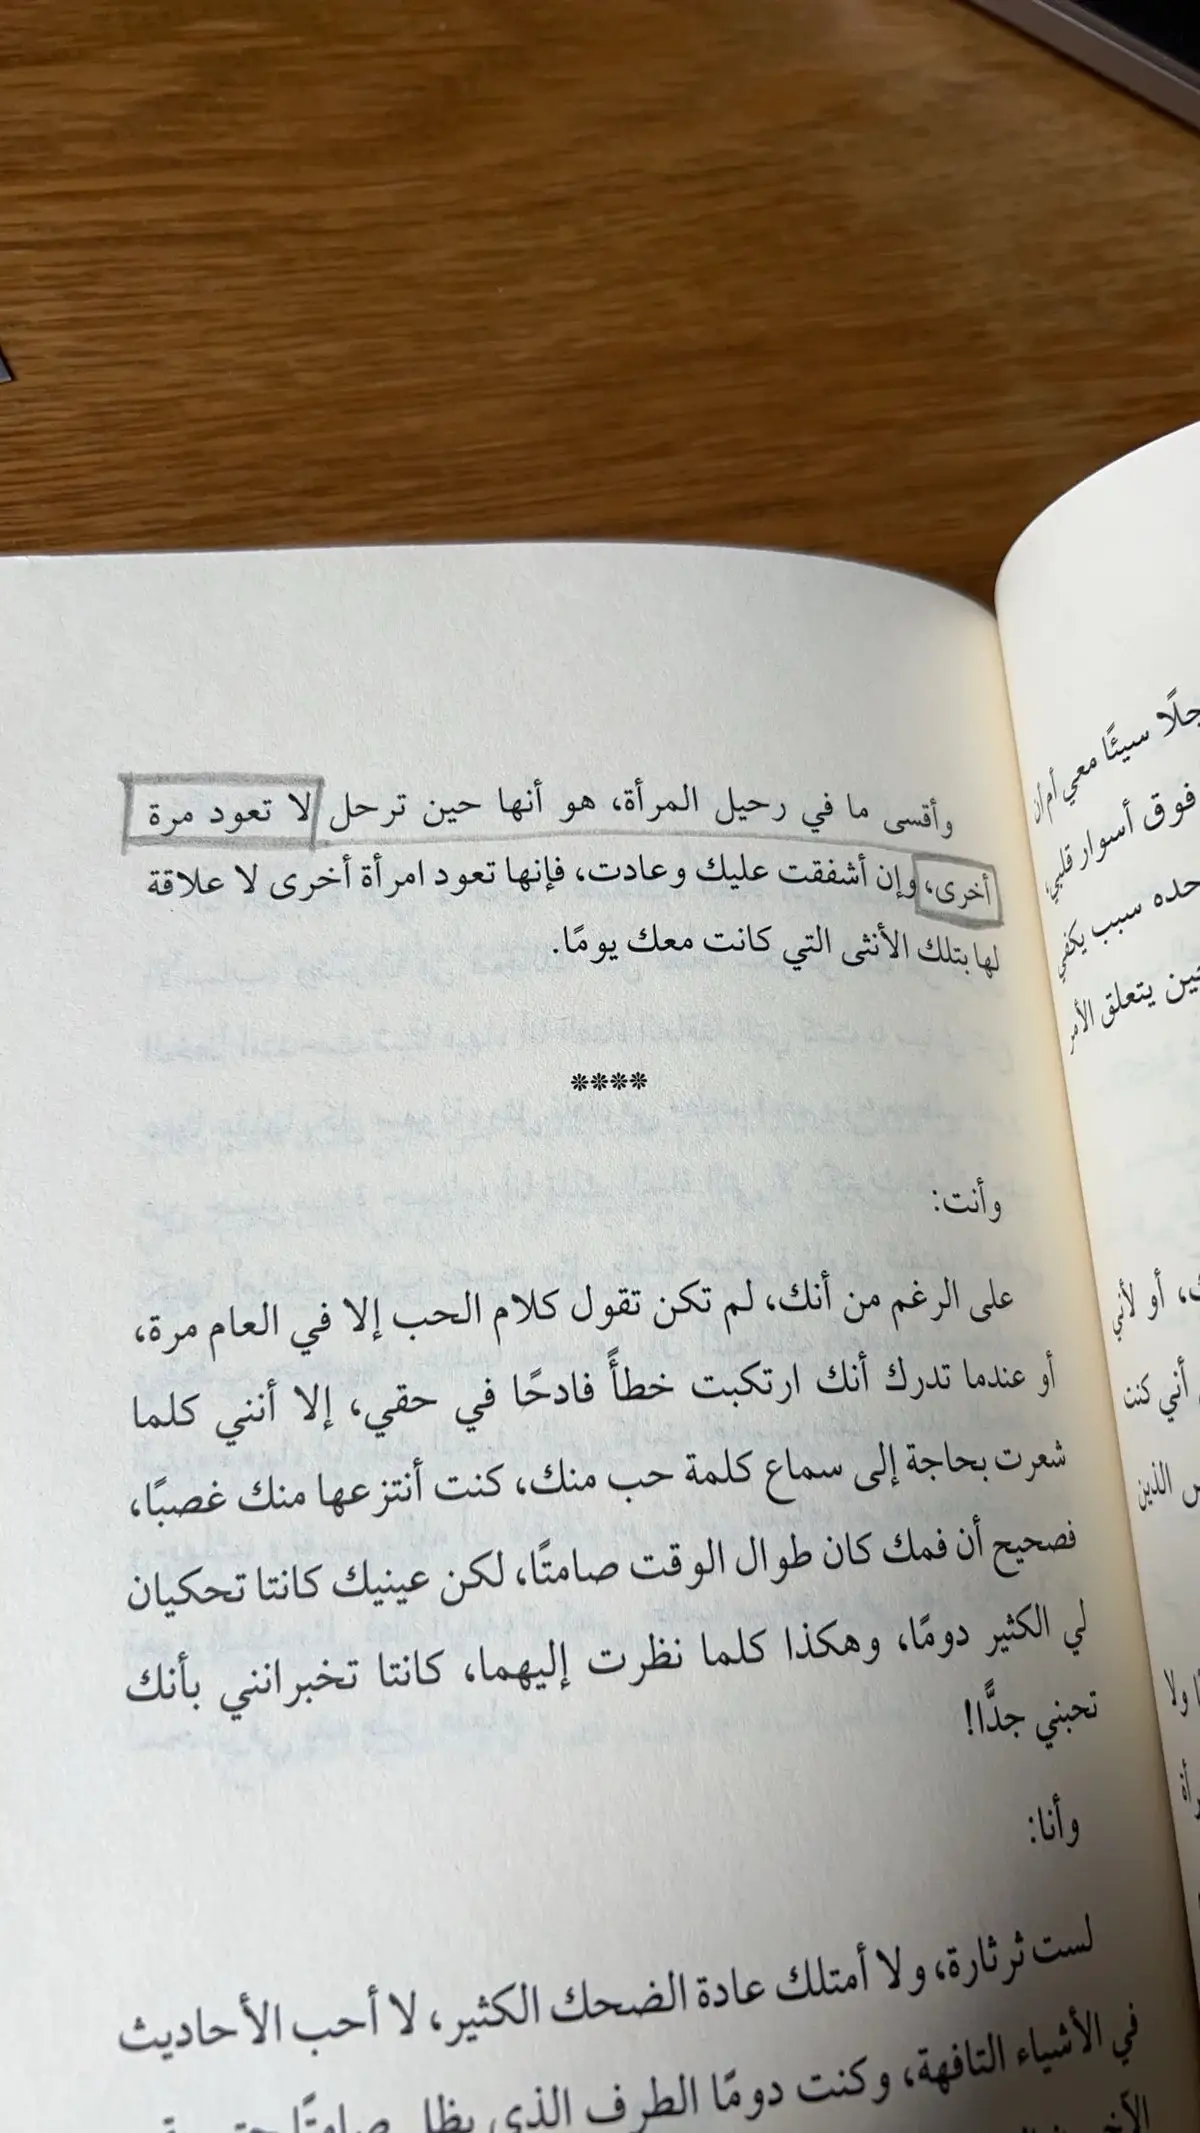 وأقسى ما في رحيل المرأة، هو أنها حين ترحل لا تعود مرة
أخرى، وإن أشفقت عليك وعادت، فإنها تعود امرأة أخرى لا علاقة
لها بتلك الأنثى التي كانت معك يومًا.
****
وأنت:
على الرغم من أنك، لم تكن تقول كلام الحب إلا في العام مرة،
أو عندما تدرك أنك ارتكبت خطأً فادحًا في حقي، إلا أنني كلما
شعرت بحاجة إلى سماع كلمة حب منك، كنت أنتزعها منك غصبًا،
فصحيح أن فمك كان طوال الوقت صامتًا، لكن عينيك كانتا تحكيان
لي الكثير دومًا، وهكذا كلما نظرت إليهما، كانتا تخبرانني بأنك
تحبني جدًّا!
وأنا:
لست ثرثارة، ولا أمتلك عادة الضحك الكثير، لا أحب الأحاديث
في الأشياء التافهة، وكنت دومًا الطرف الذي يظل صامتًا
سيئًا معي أم أن
فوق أسوار قلبي،
سبب يكفي
يتعلق الأمر
أو لأنني
أني كنت
الذين
ولا